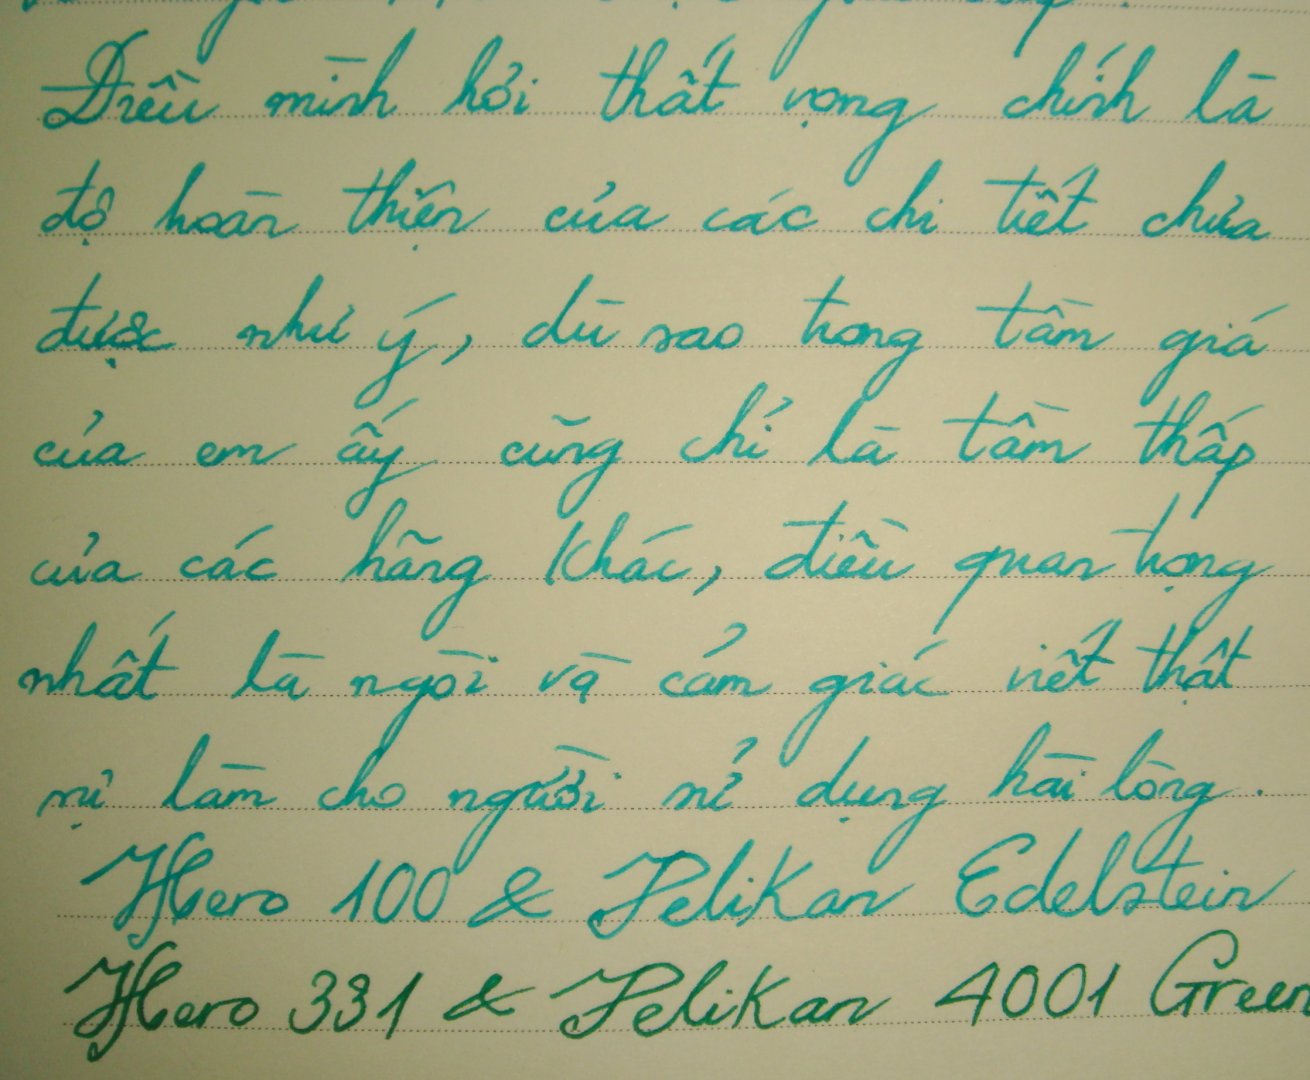 Điều mình hơi thất vọng chính là
độ hoàn thiện của các chi tiết chưa
được như ý, dù sao trong tầm giá
của em ấy cũng chỉ là tầm thấp
của các hãng khác, điều quan trọng
nhất là ngòi và cảm giác viết thật
sự làm cho người sử dụng hài lòng.
Hero 100 & Pelikan Edelstein
Hero 331 & Pelikan 4001 Green